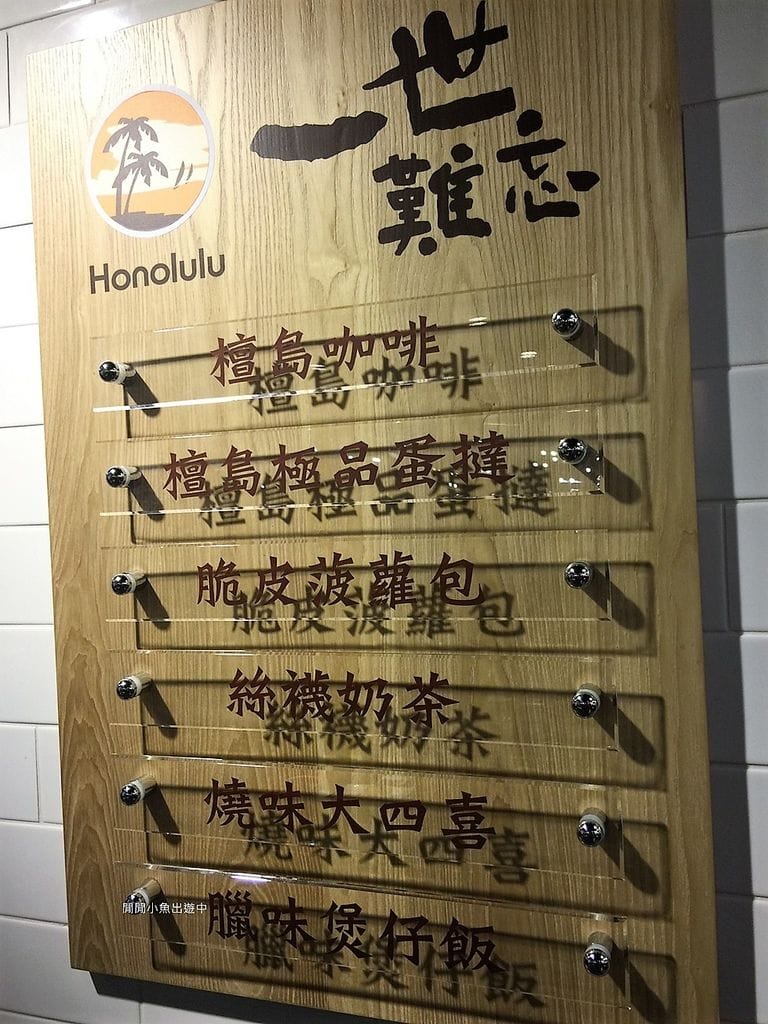 一世難忘
Honolulu
檀島咖啡
檀島極品蛋撻
脆皮菠蘿包
絲襪奶茶
燒味大四喜
臘味煲仔飯
閒閒小魚出遊中